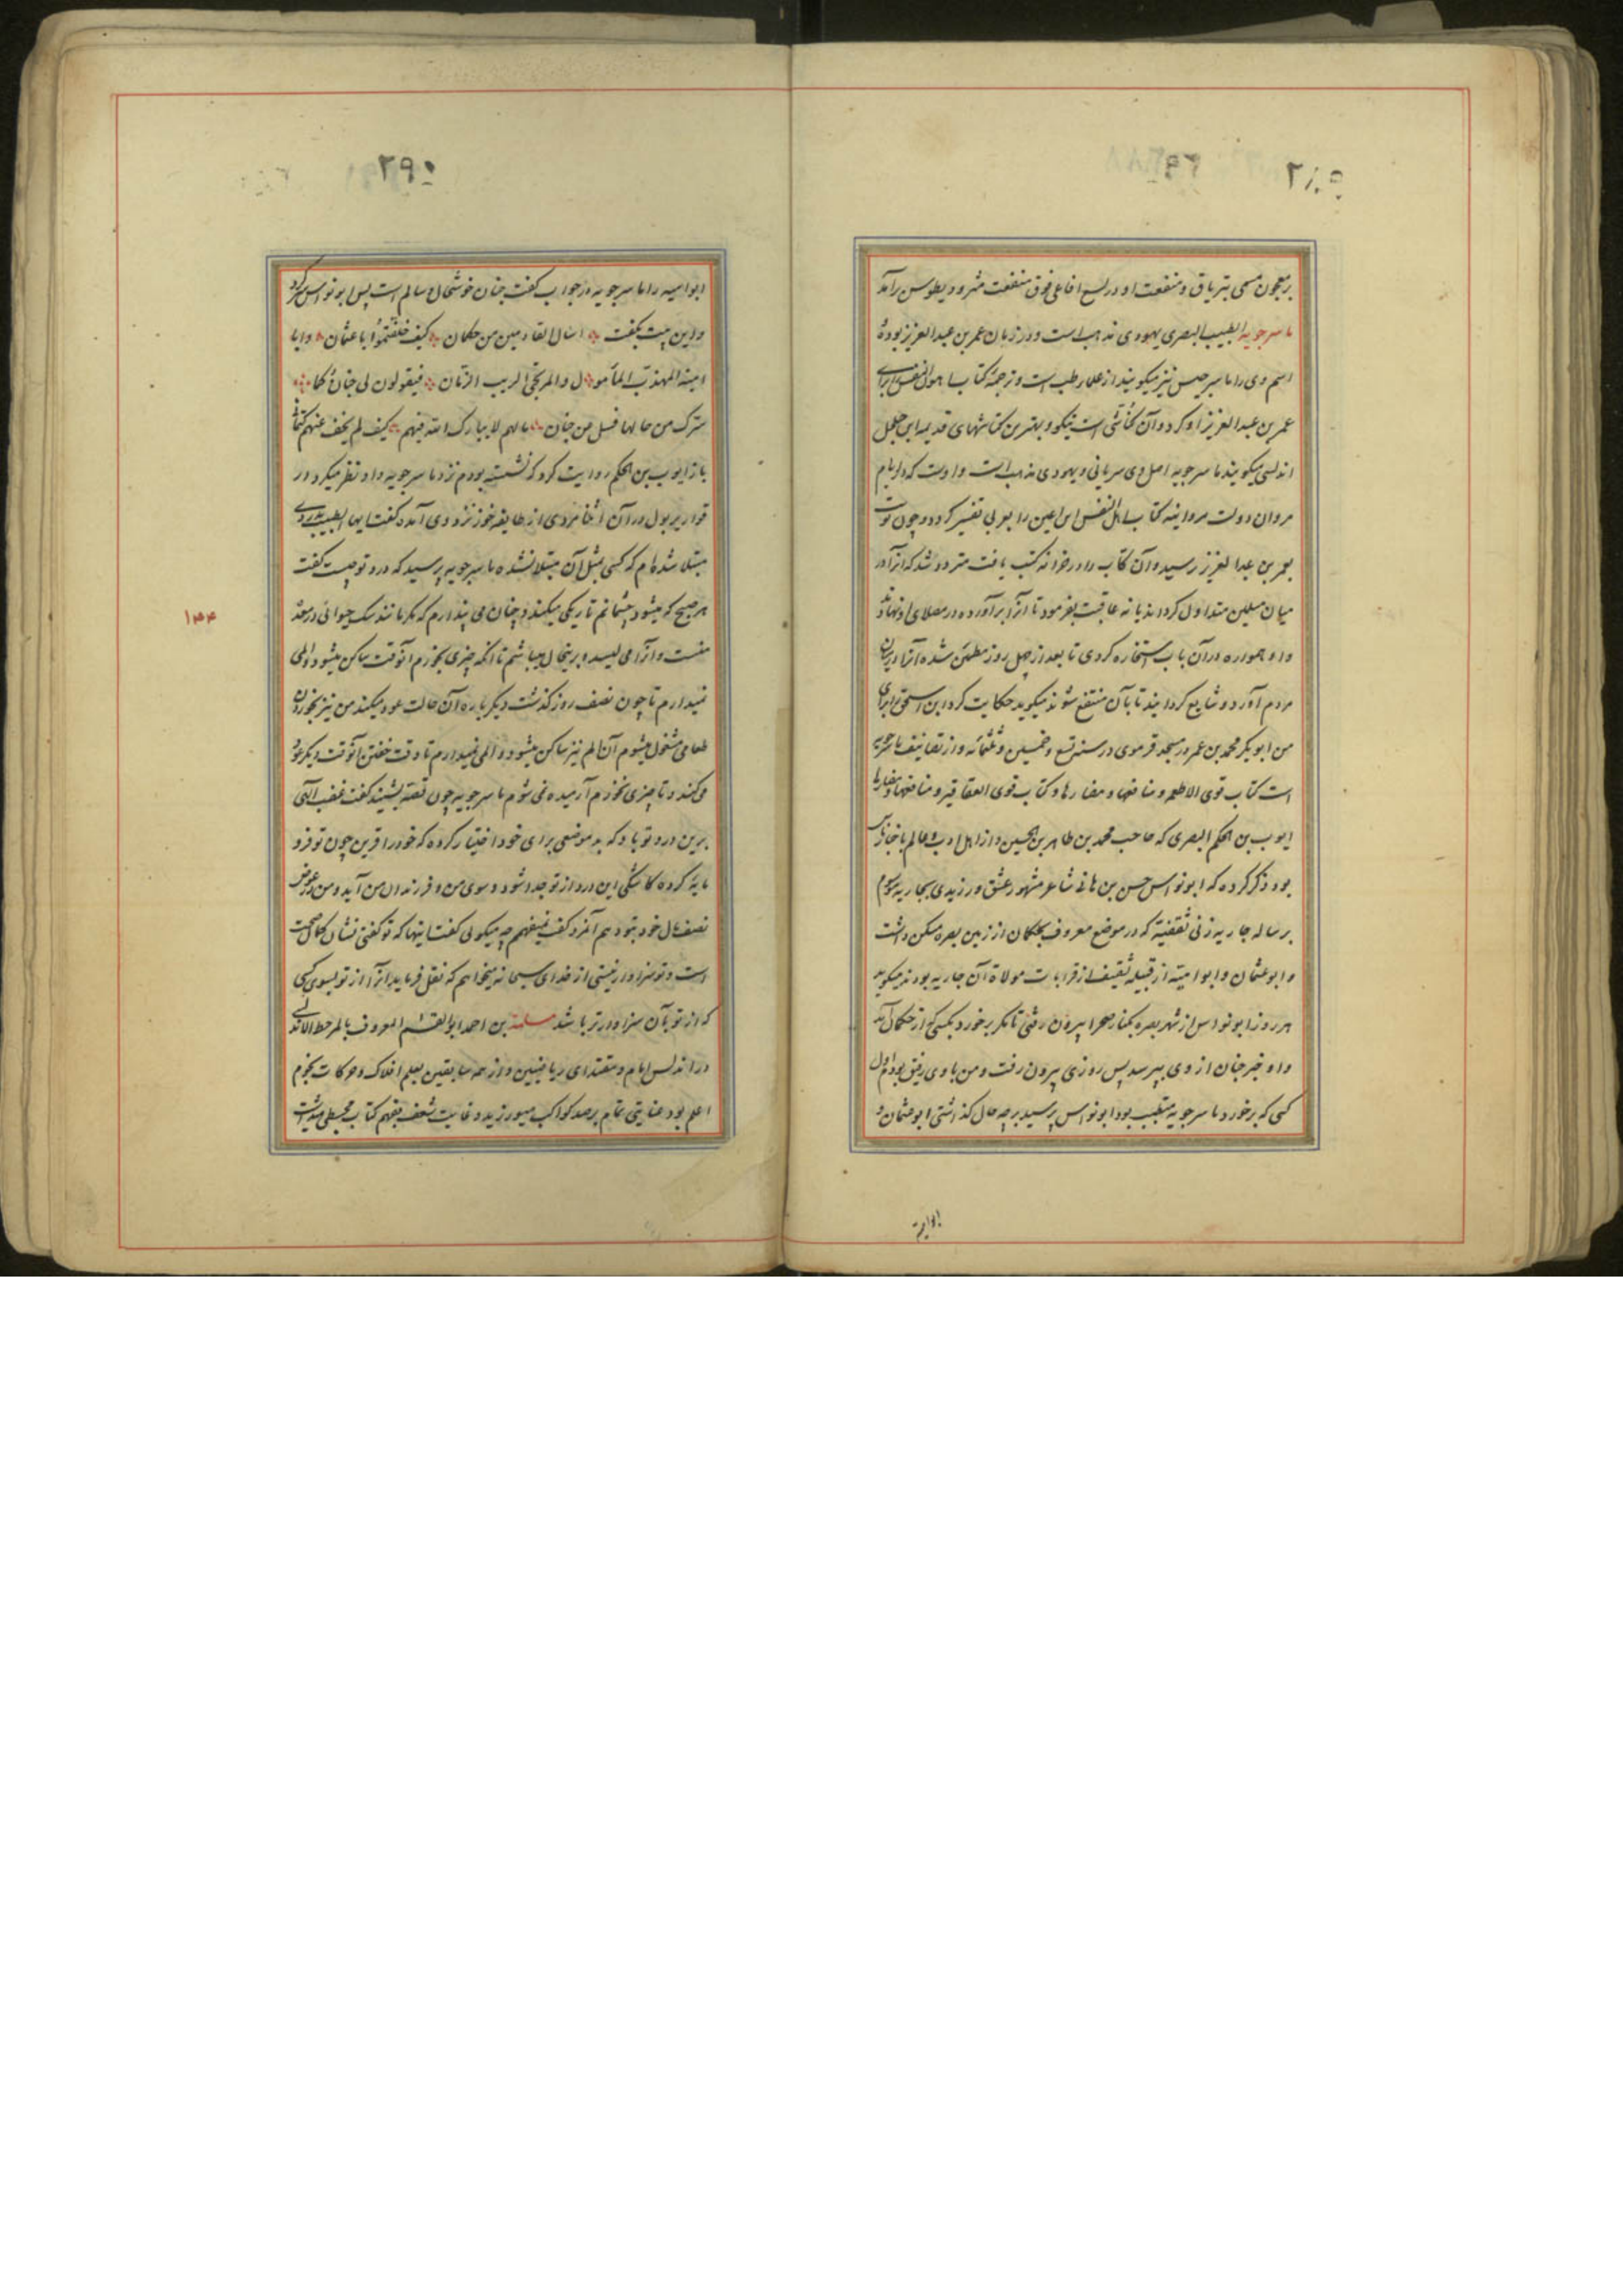 ۲۸۹
بر معجون مسمی بتریاق و منفعت او در لسع افاعی فوق منفعت مثرودیطوس برآمد
ماسرجویه الطبیب البصری یهودی مذهب است و در زمان عمر بن عبد العزیز بوده
اسم وی را ماسرجیس نیز میگویند از علماء طب است و ترجمه کتاب اهرن القس برای
عمر بن عبد العزیز او کرد و آن کناشی است نیکو و بهترین کناشهای قدیمه ابن جلجل
اندلسی میگوید ماسرجویه اصل وی سریانی و یهودی مذهب است و اوست که در ایام
مروان در دولت مروانیه کتاب اهرن القس ابن اعین را بعربی تفسیر کرد و چون نوبت
بعمر بن عبد العزیز رسید و آن کتاب را در خزانه کتب یافت متردد شد که آنرا در
میان مسلمین متداول گرداند یا نه عاقبت بفرمود تا آنرا برآورده در مصلای او نهادند
و او همواره در آن باب استخاره کردی تا بعد از چهل روز مطمئن شده آنرا در میان
مردم آورد و شایع گردانید تا بآن منتفع شوند میگوید حکایت کرد این سخن را برای
من ابو بکر محمد بن عمر در مسجد قرموی در سنه تسع و خمسین و ثلثمائه و از تصانیف ماسرجویه
است کتاب قوی الاطعمه و منافعها و مضارها و کتاب قوی العقاقیر و منافعها و مضارها
ایوب بن الحکم البصری که صاحب محمد بن طاهر بن الحسین و از اهل ادب و عالم باخبار ناس
بود ذکر کرده که ابو نواس حسن بن هانی شاعر مشهور عشق ورزیدی بجاریه موسوم
برساله جاریه زنی ثقفیه که در موضع معروف بحکمان از زمین بصره مسکن داشت
و ابو عثمان و ابو امیته از قبیله ثقیف از قرابات مولاة آن جاریه بودند میگوید
هر روز ابو نواس از شهر بصره بکنار صحرا بیرون رفتی تا مگر برخورد بکسی که از حکمان آید
و او خبر جنان از وی بپرسد پس روزی بیرون رفت و من با وی رفیق بودم اول
کسی که برخورد ماسرجویه متطبب بود ابو نواس پرسید بر چه حال گذاشتی ابو عثمان و
ابوامیه
۲۹۰
ابو امیه را ماسرجویه در جواب گفت جنان خوشحال و سالم است پس ابو نواس سر کرد
و این بیت بگفت اسأل القادمین من حکمان کیف خلفتموا ابا عثمان و ابا
امیة المهذب المأمول و المرتجی لریب الزمان فیقولون لی جنان کما
سترک من حالها فسل عن جنان ما لهم لا یبارک الله فیهم کیف لم یخف عنهم کتمانی
باز ایوب بن الحکم روایت کرد که نشسته بودم نزد ماسرجویه و او نظر میکرد در
قواریر بول در آن اثنا مردی از طایفه خوز نزد وی آمده گفت ایها الطبیب بدردی
مبتلا شده‌ام که کسی بمثل آن مبتلا نشده ماسرجویه پرسید که درد تو چیست گفت
هر صبح که میشود چشمانم تاریکی میکند و چنان می پندارم که مگر مانند سگ حیوانی در معده
منست و آنرا می لیسد و برینحال میباشم تا آنکه چیزی بخورم آنوقت ساکن میشود و المی
نمیدارم تا چون نصف روز گذشت دیگر باره آن حالت عود میکند من نیز بخوردن
طعامی مشغول میشوم آن الم نیز ساکن میشود و المی نمیدارم تا وقت خفتن آنوقت دیگر عود
می کند و تا چیزی نخورم آرمیده نمی شوم ماسرجویه چون قصه بشنید گفت غضب الهی
برین درد تو باد که بد موضعی برای خود اختیار کرده که خود را قرین چون تو فرو
مایه کرده کاشکی این درد از تو جدا شود و سوی من و فرزندان من آید و من عوض
نصف مال خود بتو دهم آنمرد گفت نمیفهمم چه میگوئی گفت اینها که تو گفتی نشان کمال صحت
است و تو سزاوار نیستی از خدای سبحانه میخواهم که نقل فرماید آنرا از تو بسوی کسی
که از تو بآن سزاوارتر باشد مسلمة بن احمد ابو القسم المعروف بالمرحیط الاندلسی
در اندلس امام و مقتدای ریاضیین و از همه سابقین بعلم افلاک و حرکات نجوم
اعلم بود عنایتی تمام برصد کواکب میورزید و غایت شغف بفهم کتاب مجسطی میداشت
۱۴۴